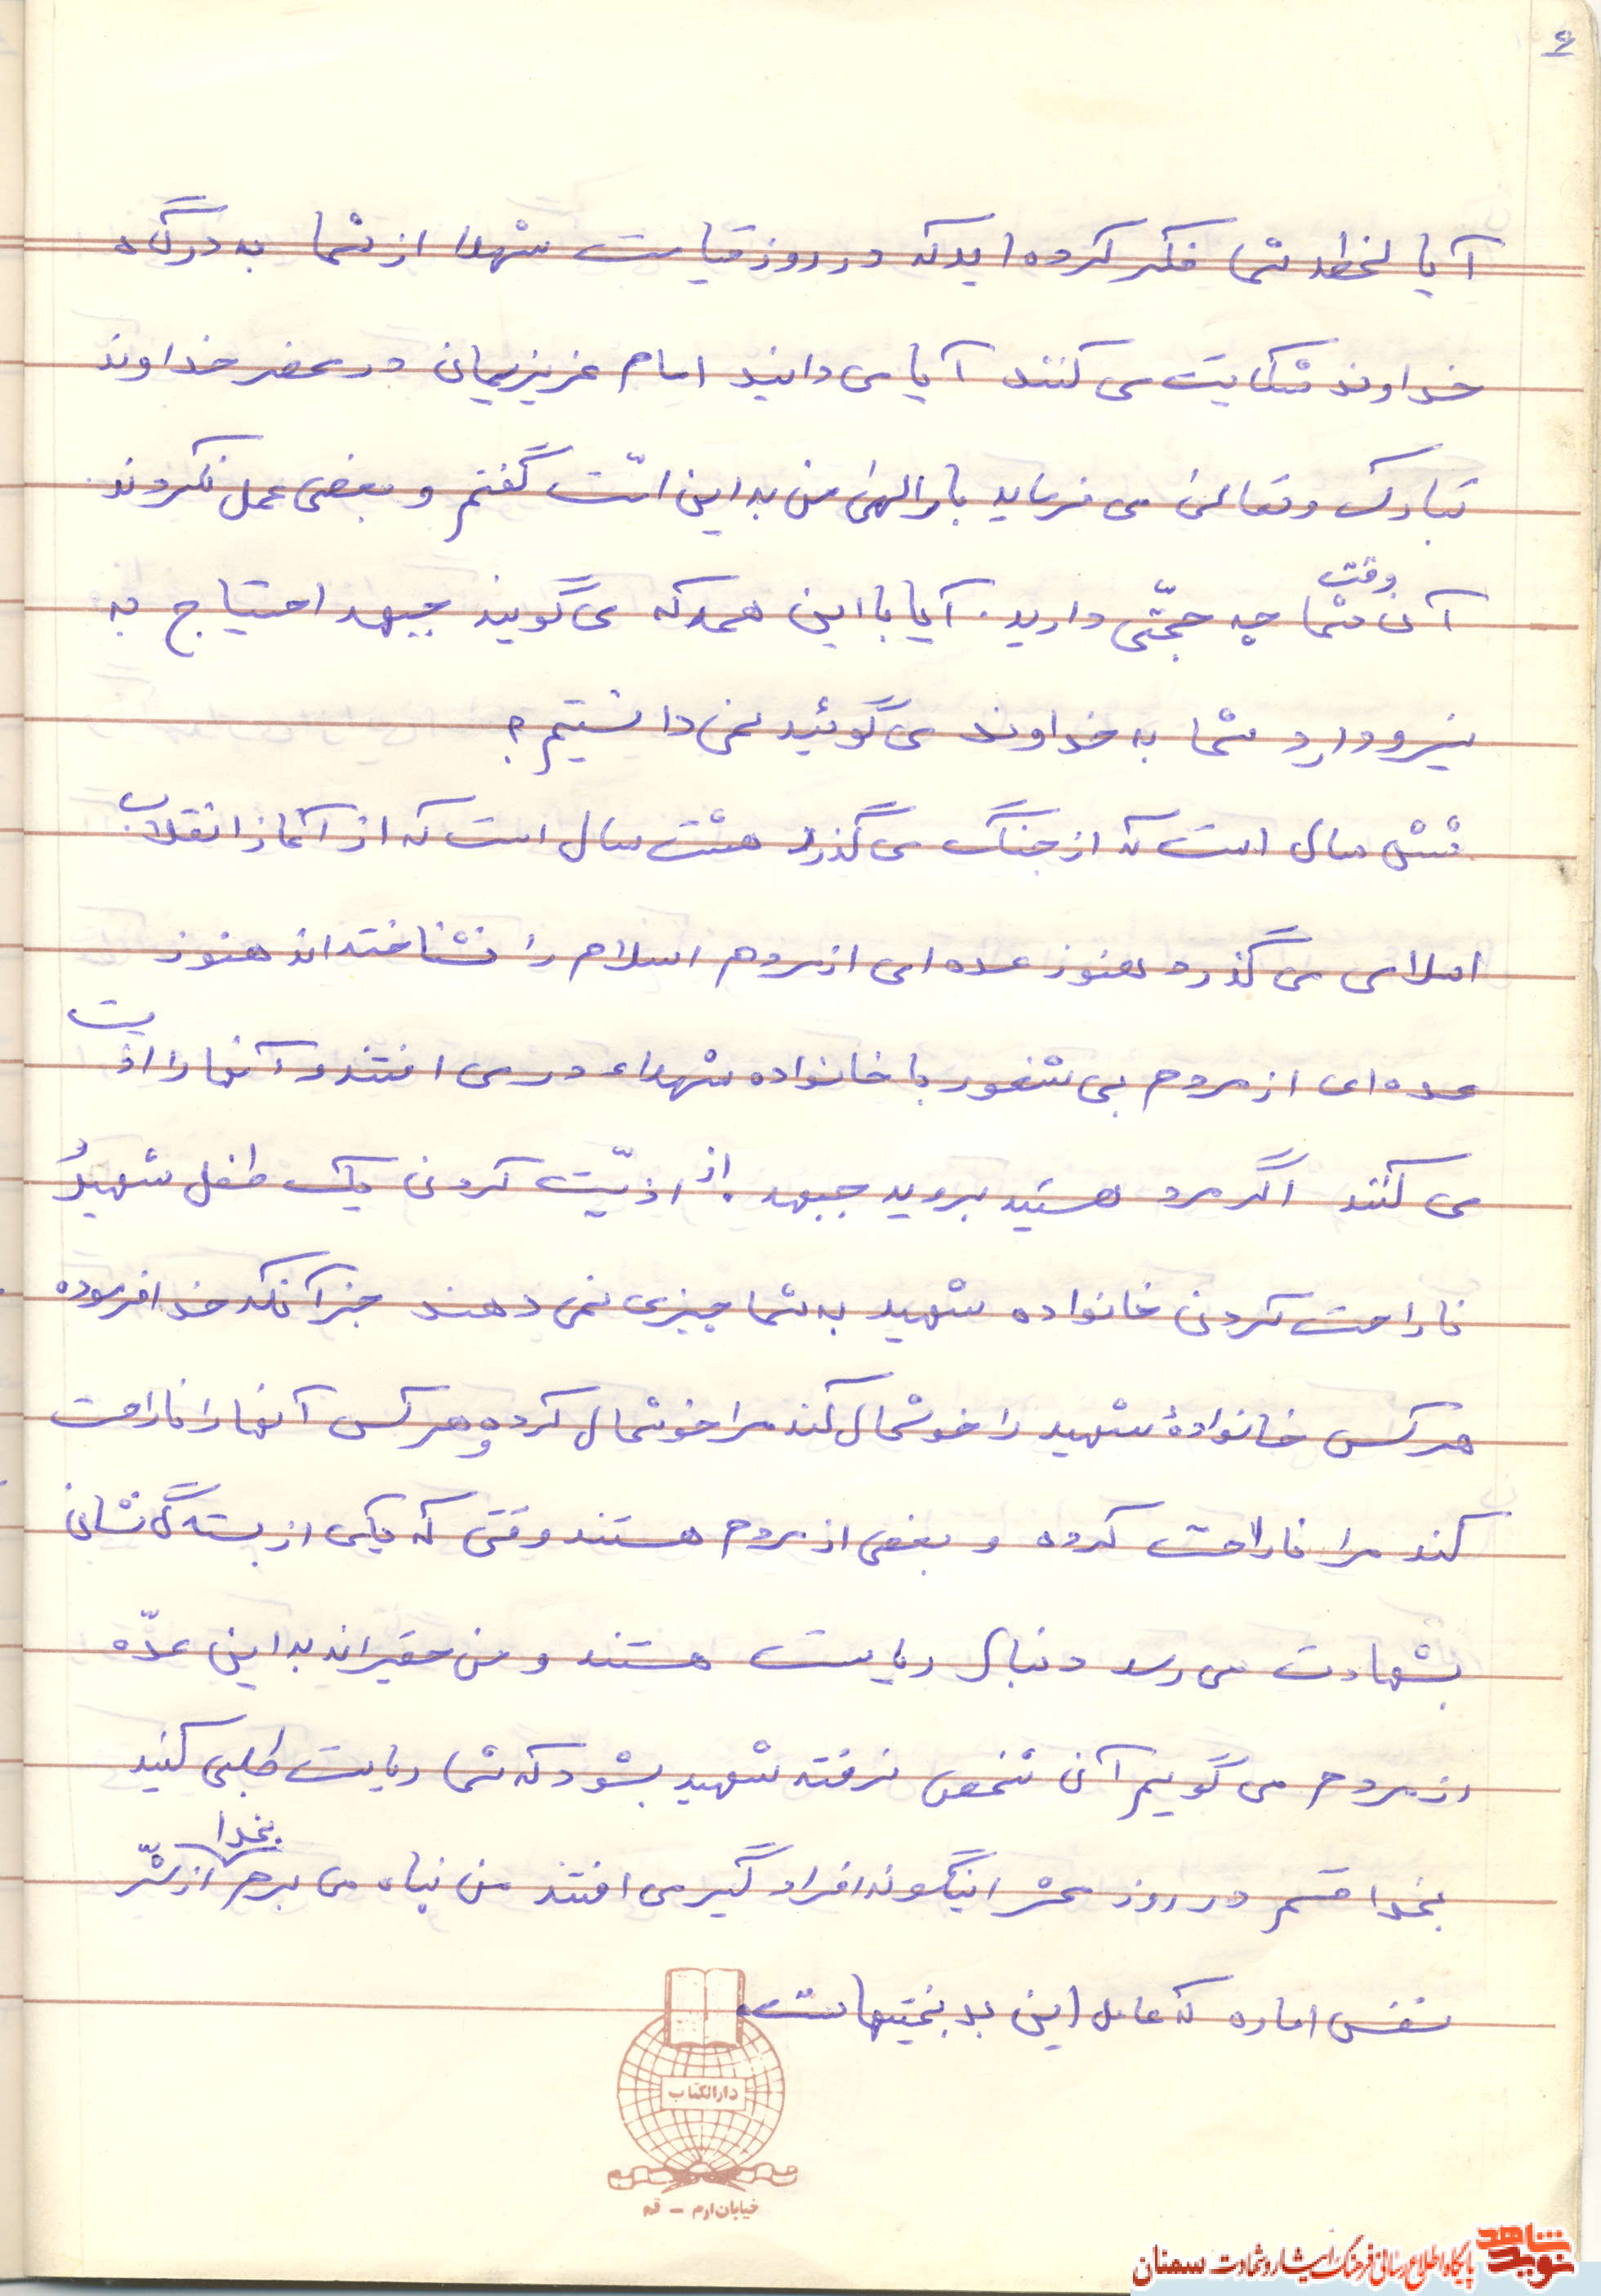 ۶
آیا لحظه شما فکر کرده اید که در روز قیامت شهدا از شما به درگاه
خداوند شکایت می کنند آیا می دانید امام عزیزیمان در محضر خداوند
تبارک و تعالی می فرماید بارالهی من به این امّت گفتم و بعضی عمل نکردند.
آن وقت شما چه حجّتی دارید. آیا با این همه که می گویند جبهه احتیاج به
نیرو دارد شما به خداوند می گوئید نمی دانستیم؟
شش سال است که از جنگ می گذرد هشت سال است که از آغاز انقلاب
اسلامی می گذرد هنوز عده ای از مردم اسلام را نشناخته اند هنوز
عده ای از مردم بی شعور با خانواده شهداء در می افتند و آنها را اذیت
می کنند اگر مرد هستید بروید جبهه. از اذیّت کردن یک طفل شهید و
ناراحت کردن خانواده شهید به شما چیزی نمی دهند جز آنکه خدا فرموده
هر کس خانوادهٔ شهید را خوشحال کند مرا خوشحال کرده و هر کس آنها را ناراحت
کند مرا ناراحت کرده و بعضی از مردم هستند وقتی که یکی از بستگانشان
بشهادت می رسد دنبال ریاست هستند و من حقیرانه به این عدّه
از مردم می گویم آن شخص نرفته شهید بشود که شما ریاست طلبی کنید
بخدا قسم در روز محشر اینگونه افراد گیر می افتند من پناه می برم بخدا از شرّ
نفس اماره که عامل این بدبختیهاست.
دارالکتاب
خیابان ارم – قم
نوید شاهد
پایگاه اطلاع رسانی فرهنگ ایثار و شهادت سمنان